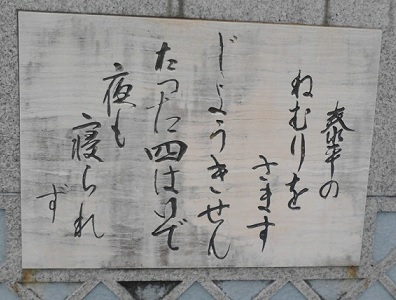 泰平の
ねむりを
さます
じようきせん
たつた四はいで
夜も
寝られ
ず